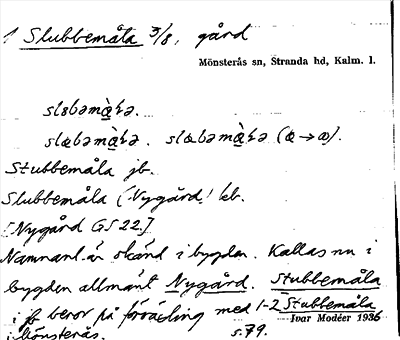 1 Slubbemåla 3/8, gård
Mönsterås sn, Stranda hd, Kalm. l.
Stubbemåla jb.
Slubbemåla (Nygård) kb.
[Nygård GS 22.]
Namnet är okänd i bygden. Kallas nu i
bygden allmänt Nygård. Stubbemåla
i jb beror på förväxling med 1-2 Stubbemåla
i Mönsterås. s. 79.
Ivar Modéer 1936